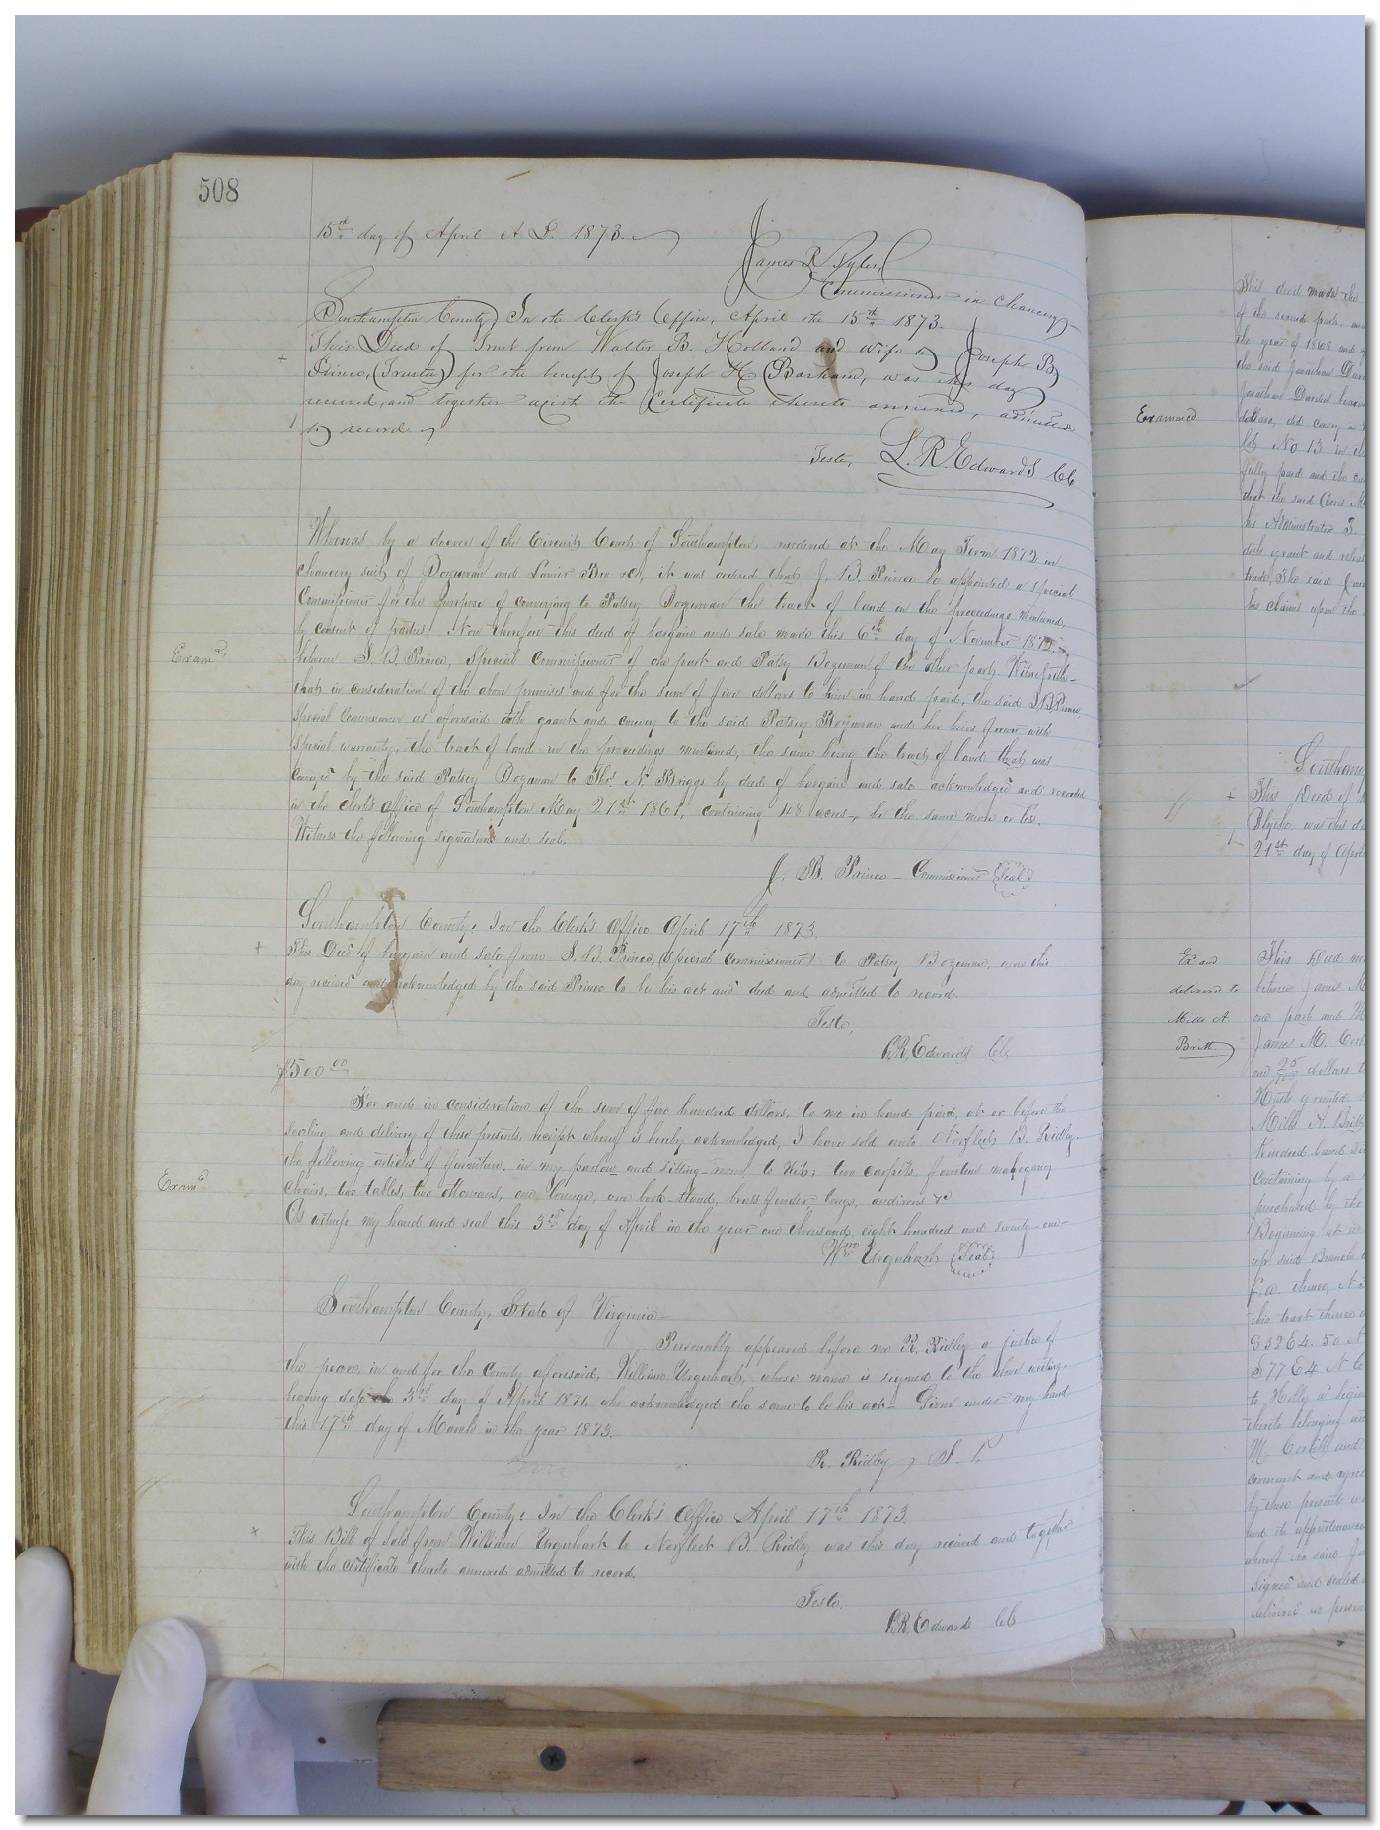 508
15th day of April A.D. 1873.
James R. Tyler,
Commissioner in Chancery
Southampton County, In the Clerk's Office, April the 15th 1873.
This Deed of Trust from Walter B. Holland and wife to Joseph B.
Prince, (Trustee) for the benefit of Joseph H. Barham, was this day
received, and together with the Certificate thereto annexed, admitted
to record.
Teste, L. R. Edwards CC
Whereas by a decree of the Circuit Court of Southampton, rendered at the May Term 1872 in
chancery suit of Bozeman and Lanier Bro &c, it was ordered that J. B. Prince be appointed a special
Commissioner for the purpose of conveying to Patsey Bozeman the tract of land in the proceedings mentioned,
by consent of parties. Now therefore this deed of bargain and sale made this 6th day of November 1872,
Examd.
between J. B. Prince, Special Commissioner of one part and Patsy Bozeman of the other part. Witnesseth
that in consideration of the above premises and for the sum of five dollars to him in hand paid, the said J. B. Prince,
Special Commissioner as aforesaid doth grant and convey to the said Patsey Bozeman and her heirs forever with
Special warranty, the tract of land in the proceedings mentioned, the same being the tract of land that was
conveyed by the said Patsey Bozeman to Thos. N. Briggs by deed of bargain and sale acknowledged and recorded
in the clerk's office of Southampton May 21st 1861, containing 48 acres, be the same more or less.
Witness the following signature and seal.
J. B. Prince - Commissioner Seal
Southampton County: In the Clerk's Office April 17th 1873.
This Deed of bargain and sale from J. B. Prince, (Special Commissioner) to Patsey Bozeman, was this
day received and acknowledged by the said Prince to be his act and deed and admitted to record.
Teste,
L. R. Edwards CC
$500.00
For and in consideration of the sum of five hundred dollars, to me in hand paid, at or before the
sealing and delivery of these presents, receipt whereof is hereby acknowledged, I have sold unto Norfleet B. Ridley
the following articles of furniture in my parlor and sitting-room, to Wit; two carpets, fourteen mahogany
Examd.
chairs, two tables, two ottomans, one lounge, one book-stand, brass fender, tongs, andirons &c
As witness my hand and seal this 3rd day of April in the year one thousand eight hundred and seventy-one
Wm Urquhart Seal
Southampton County, State of Virginia
Personally appeared before me R. Ridley a justice of
the peace, in and for the County aforesaid, William Urquhart, whose name is signed to the above writing
bearing date 3rd day of April 1871, who acknowledged the same to be his act. Given under my hand
this 17th day of March in the year 1873.
R. Ridley, J. P.
Southampton County: In the Clerk's Office April 17th 1873.
This Bill of Sale from William Urquhart to Norfleet B. Ridley was this day received and together
with the certificate thereto annexed admitted to record.
Teste,
L. R. Edwards CC
This deed made the
of the second part,
the year of 1868 and
the said Jonathan
Jonathan Darden
Examined
dollars, did convey
Lot No 13 in
fully paid and the
that the said
his Administrator
doth grant and release
trade, The said
his claims upon the
Southamp
This Deed of
Blythe, was this d
21st day of Apri
Ex and
delivered to
Mills A.
Britt
This Deed m
between James M.
one part and M
James M. Cor
and 25/100 dollars
Hath granted
Mills A. Britt
hundred and
containing by a
purchased by the
Beginning at a
up said Branch
thence N
his tract thence
S32E4.50 N
S77E4 N
to Holly a begin
thereto belonging
M. and
covenant and agree
by these presents
and its appurtenances
Signed and sealed
delivered in presence